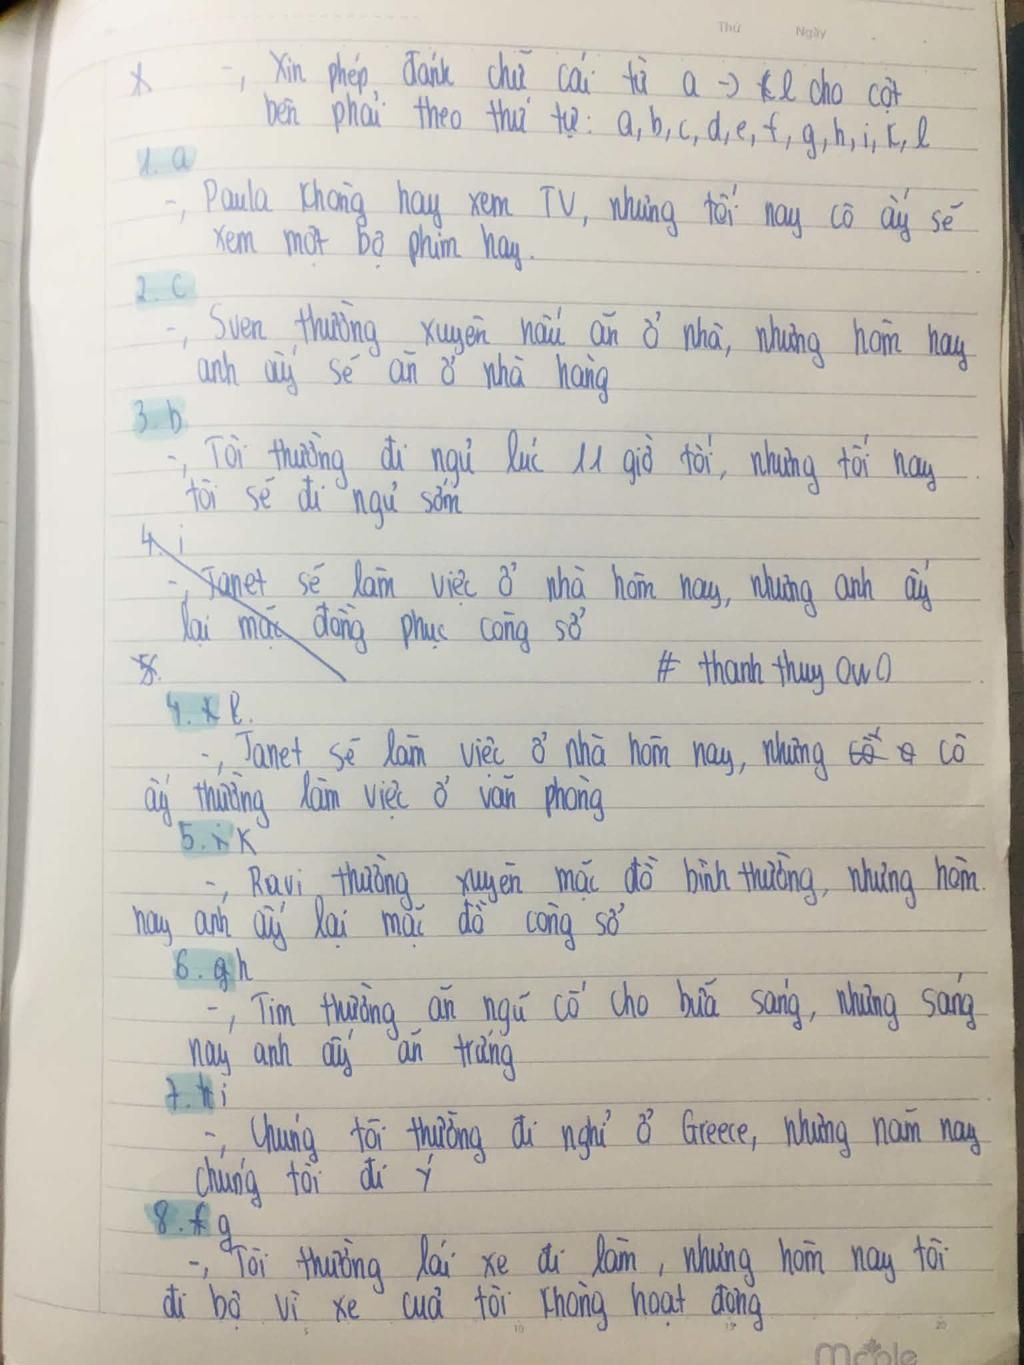 Thứ Ngày
* -, Xin phép đánh chữ cái từ a -> l cho cột
bên phải theo thứ tự: a, b, c, d, e, f, g, h, i, k, l
1. a
-, Paula không hay xem TV, nhưng tối nay cô ấy sẽ
xem một bộ phim hay.
2. c
-, Sven thường xuyên nấu ăn ở nhà, nhưng hôm nay
anh ấy sẽ ăn ở nhà hàng
3. b
-, Tôi thường đi ngủ lúc 11 giờ tối, nhưng tối nay
tôi sẽ đi ngủ sớm
4. i
-, Janet sẽ làm việc ở nhà hôm nay, nhưng anh ấy
lại mặc đồng phục công sở
5. # thanh thuy OwO
4. l.
-, Janet sẽ làm việc ở nhà hôm nay, nhưng cô
ấy thường làm việc ở văn phòng
5. k
-, Ravi thường xuyên mặc đồ bình thường, nhưng hôm
nay anh ấy lại mặc đồ công sở
6. h
-, Tim thường ăn ngũ cốc cho bữa sáng, nhưng sáng
nay anh ấy ăn trứng
7. i
-, Chúng tôi thường đi nghỉ ở Greece, nhưng năm nay
chúng tôi đi Ý
8. g
-, Tôi thường lái xe đi làm, nhưng hôm nay tôi
đi bộ vì xe của tôi không hoạt động
5 10 15 20